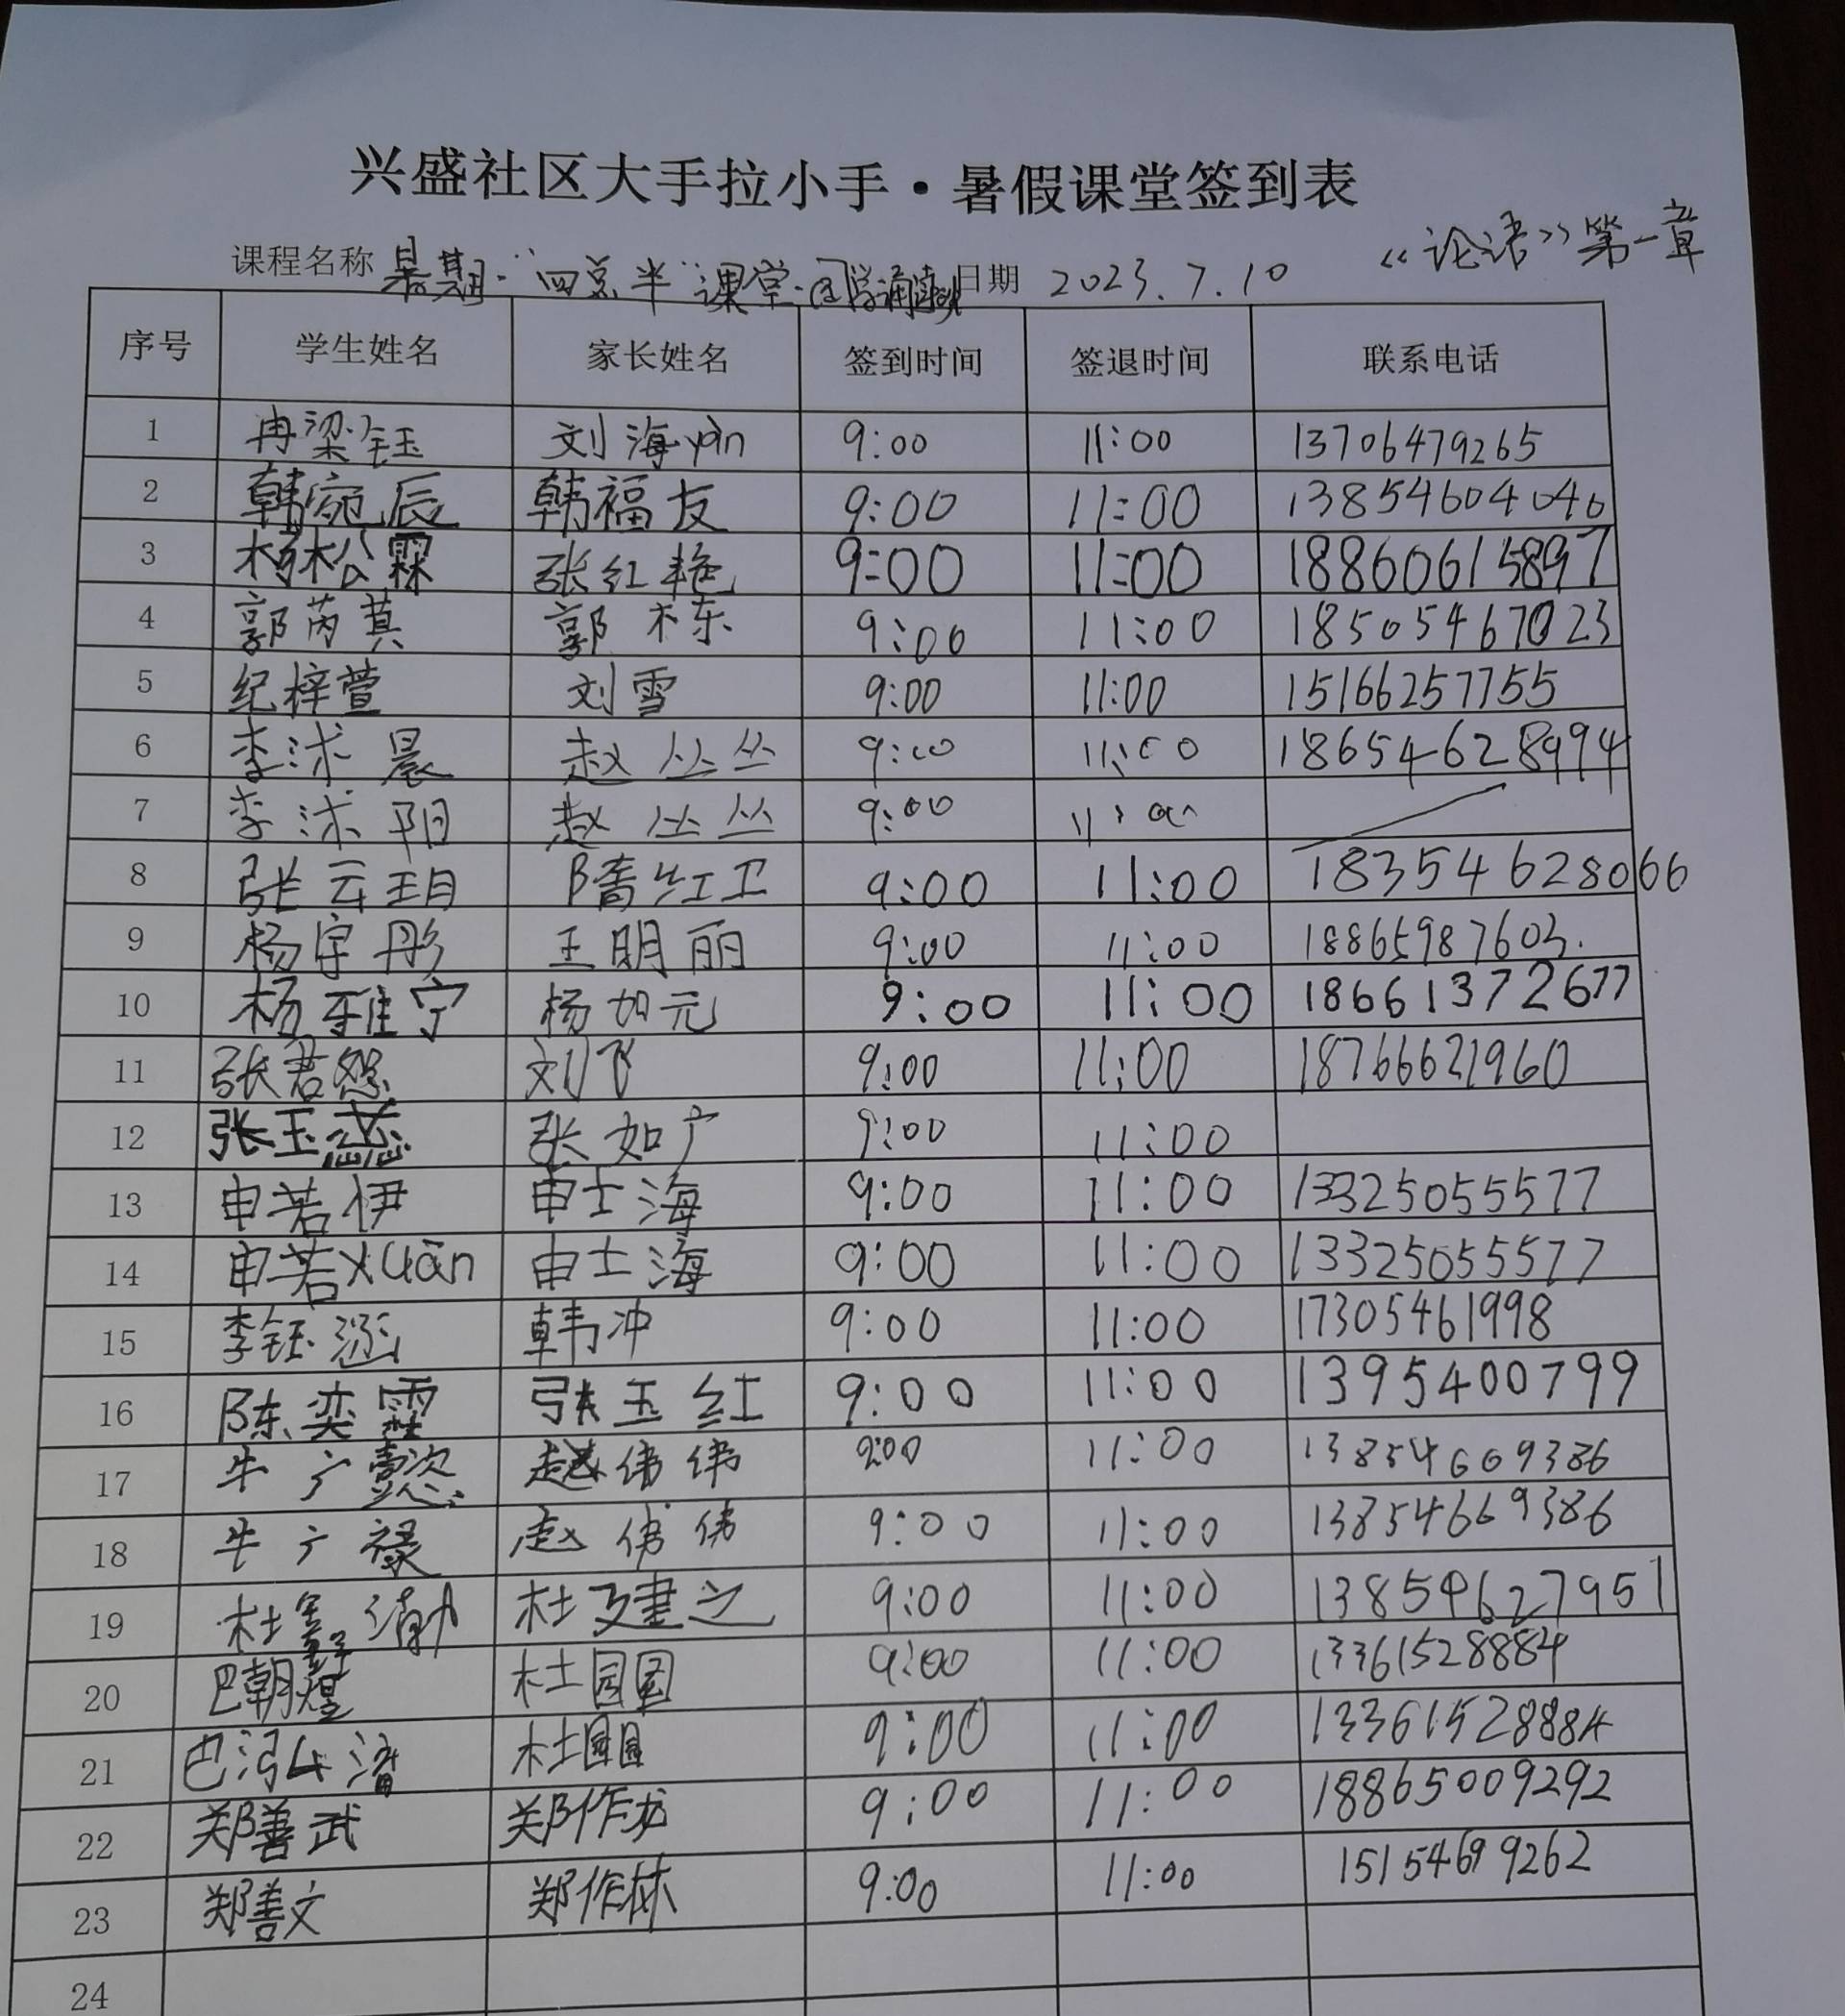 兴盛社区大手拉小手·暑假课堂签到表
《论语》第一章
课程名称 暑期·"四点半"课堂·国学诵读 日期 2023.7.10
序号 学生姓名 家长姓名 签到时间 签退时间 联系电话
1 冉梁钰 刘海yàn 9:00 11:00 13706479265
2 韩宛辰 韩福友 9:00 11:00 13854604040
3 杨松霖 张红艳 9:00 11:00 18860615897
4 郭芮萁 郭栋 9:00 11:00 18505467023
5 纪梓萱 刘雪 9:00 11:00 15166257755
6 李沭晨 赵丛丛 9:00 11:00 18654628994
7 李沭阳 赵丛丛 9:00 11:00
8 张云玥 隋红卫 9:00 11:00 18354628066
9 杨宇彤 王明丽 9:00 11:00 18865987603.
10 杨雅宁 杨加元 9:00 11:00 18661372677
11 张君 刘飞 9:00 11:00 18766621960
12 张玉蕊 张如广 9:00 11:00
13 申若伊 申士海 9:00 11:00 13325055577
14 申若xuān 申士海 9:00 11:00 13325055577
15 李钰涵 韩冲 9:00 11:00 17305461998
16 陈奕霖 张玉红 9:00 11:00 1395400799
17 牛广懿 赵伟伟 9:00 11:00 13854669386
18 牛广禄 赵伟伟 9:00 11:00 13854669386
19 杜鑫 杜建之 9:00 11:00 13854627951
20 巴朝煌 杜园园 9:00 11:00 13361528884
21 巴 杜园园 9:00 11:00 13361528884
22 郑善武 郑作龙 9:00 11:00 18865009292
23 郑善文 郑作林 9:00 11:00 15154699262
24